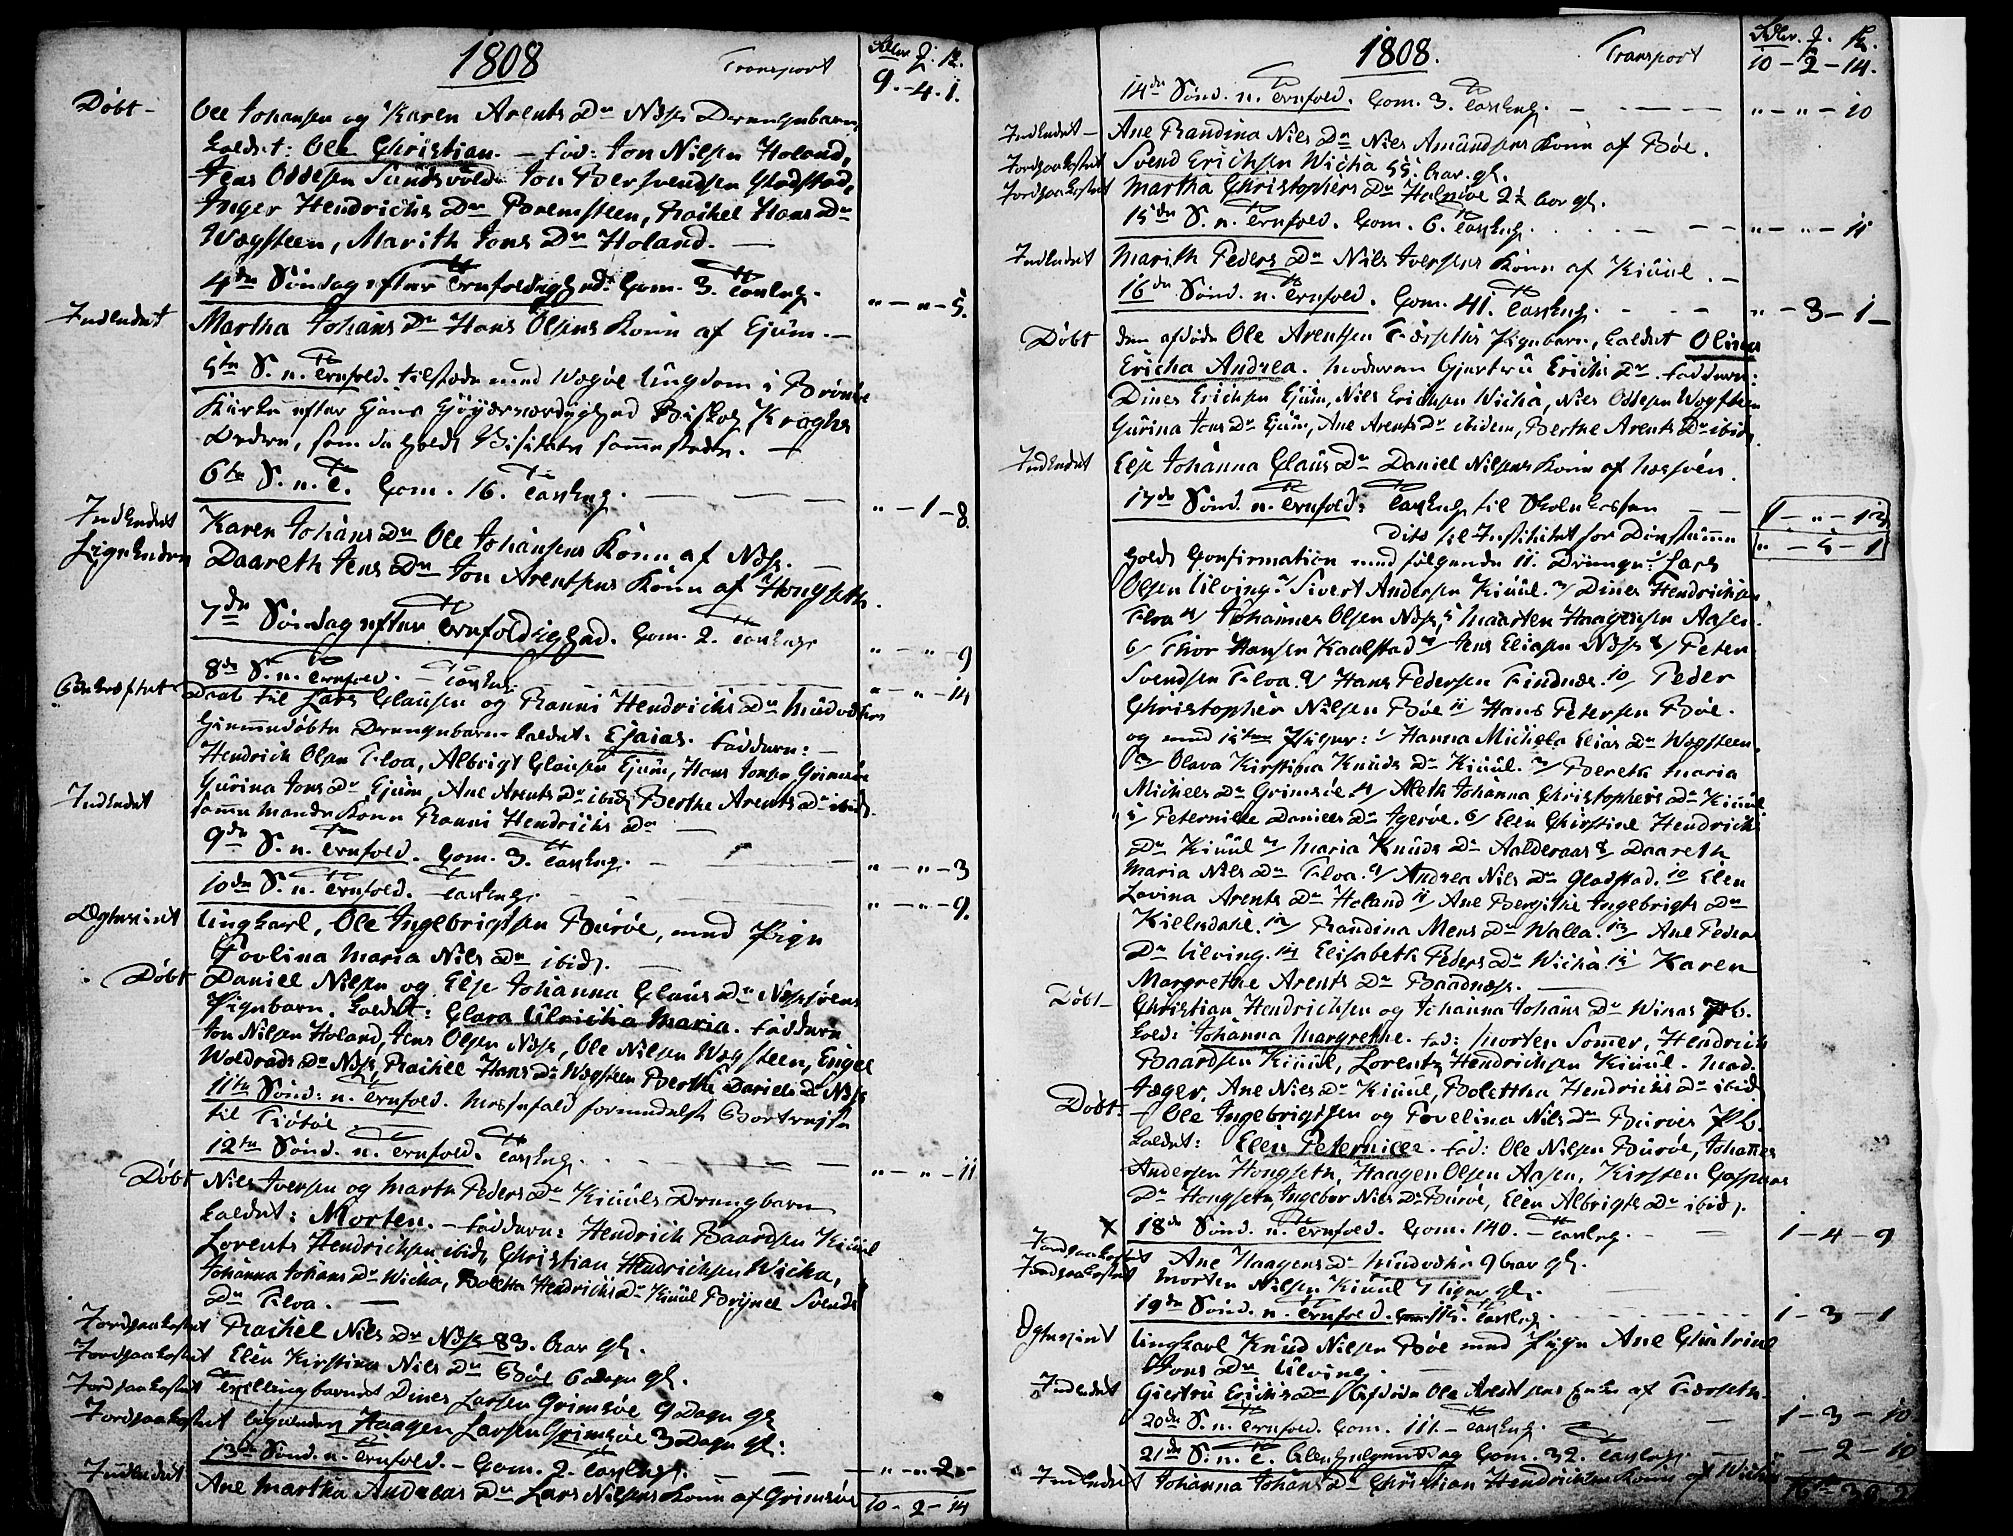 1808
Transport
9. - 4. 1.
Døbt - Ole Johansen og Karen Arents Dr Næss Drengebarn
kaldet: Ole Christian. - fad: Jon Nilsen Holand,
Jens Oddesen Sundsvold Jon Bersvendsen Gladstad,
Inger Hendrichs Dr Bremsteen, Rachel Hans Dr
Wægsteen, Marith Jons Dr Holand. -
4de Søndag efter Trinfoldighed. Com. 3. " - " - 5.
Indledet Martha Johans Dr Hans Olsens Kone af Ejum. -
5te S. n. Trefold. tilstæde med Wægøe Ungdom i Brønøe
Kirke efter Hans Høyærværdighed Biskop Kroghs
Ordern, som da holdt Visitatz sammestede. -
6te S. n. T. Com. 16. " - 1 - 8.
Indledet Karen Johans Dr Ole Johansens Kone af Næss. -
Ligeledes Daareth Jens Dr Jon Arentsens Kone af Hongseth.
7de Søndag efter Trefoldighed. Com. 2. " - " - 9
8de S. n. Trefold. - " - " - 14
Daab til Lars Clausen og Ranni Hendrichs Dr
Hiemmedøbte Drengebarn kaldet: Esaias. Faddere: -
Hendrich Olsen Floa, Albrigt Clausen Ejum, Hans Jonsen Grimsøe
Gurina Jons Dr Ejum, Ane Arents Dr ibid, Berthe Arents Dr ibid.
Indledet samme Mands Kone Ranni Hendrichs Dr -
9de S. n. Trefold. Com. 3. " - " - 3
10de S. n. Trefold. " - " - 9.
Ungkarl, Ole Ingebrigtsen Burøe, med Pige
Povlina Maria Nils Dr ibid.
Døbt Daniel Nilsen og Else Johanna Claus Dr
Pigebarn, kaldet: Clara Ulricha Maria. Faddere
Jon Nilsen Holand, Jens Olsen Næss, Ole Nilsen Wægsteen, Engel
Woldrads Dr Næss, Rachel Hans Dr Wægsteen Berthe Daniels Dr Næss
11te Sønd: n. Trefold. Messefald formedelst Bortrejse
til Tiøtøe
12te Sønd. n. Trefold. " - " - 11
Døbt Niels Iversen og Marth Peders Dr Kiuuls Drengbarn
kaldet: Morten. - Faddere: Hendrich Baardsen Kiuul
Lorents Hendrichsen ibid, Christian Hendrichsen Wicha,
Johanna Johans Dr Wicha, Boletta Hendrichs Dr Kiuul Brynel Svends
Dr Floa. -
Jordpaakastet Rachel Nils Dr Næss 83. Aar gl.
Jordpaakastet Elen Kirstina Nils Dr Bøe 6 Dage gl.
Jordpaakastet Tvillingbarnet Dines Larsen Grimsøe 9 Dage gl
Jordpaakastet ligeledes Haagen Larsen Grimsøe 3 Dage gl:
13de Sønd. n. Trefold. - Com. 2. - " - " - 2 -
Indledet Ane Martha Andreas Dr Lars Nilsens Kone af Grimsøe
10 - 2 - 14
1808.
Transport
10 - 2 - 14.
14de Sønd. n. Trefold. Com. 3. " - " - 10
Indledet - Ane Randina Nils Dr Niels Amundsens Kone af Bøe.
Jordpaakastet Svend Erichsen Wicha 55 Aar gl.
Jordpaakastet Martha Christophers Dr Halmøe 2½ Aar gl.
15de S. n. Trefold. Com. 6. " - " - 11
Indledet Marith Peders Dr Niels Iversens Kone af Kiuul. -
16de Sønd. n. Trefold. Com. 41. " - 3 - 1 -
Døbt den afdøde Ole Arentsen Pigebarn, kaldet Olina
Ericha Andrea. Moderen Gjertru Erichs Dr. Faddere:
Dines Erichsen Ejum, Nils Erichsen Wicha, Niels Oddesen Wægsteen
Gurina Jons Dr Ejum, Ane Arents Dr ibidem, Berthe Arents Dr ibid.
Indledet Else Johanna Claus Dr Daniel Nilsens Kone af
17de Sønd. n. Trefold: til Skolekassen 1 - " - 12
Dito til Institutet for Døvstumme " - 5 - 1
holdt Confirmation med følgende 11. Drenge: 1/ Lars
Olsen Ulving. 2/ Sivert Andersen Kiuul. 3/ Dines Hendrichsen
Floa 4/ Johannes Olsen Næss, 5/ Maarten Haagensen Aasen
6/ Thor Hansen Kaalstad 7/ Jens Eliasen Næss 8/ Peter
Svendsen Floa. 9/ Hans Pedersen Tindnæs. 10/ Peder
Christopher Nilsen Bøe 11/ Hans Petersen Bøe.
og med Piger: 1/ Hanna Michela Elias Dr Wægsteen.
2/ Olava Kirstina Knuds Dr Kiuul. 3/ Bereth Maria
Michels Dr Grimsøe. 4/ Aleth Johanna Christophers Dr Kiuul
5/ Peternille Daniels Dr Igerøe. 6/ Elen Christine Hendrichs
Dr Kiuul 7/ Maria Knuds Dr Aalderaas 8/ Daareth
Maria Nils Dr Floa. 9/ Andrea Nils Dr Gladstad. 10 Elen
Lovina Arents Dr Holand 11/ Ane Bergithe Ingebrigts Dr
12/ Randina Mons Dr Walla. 13/ Ane Peders
Dr Ulving. 14/ Elisabeth Peders Dr Wicha. 15/ Karen
Margrethe Arents Dr Baadnæss.
Døbt - Christian Hendrichsen og Johanna Johans Dr Wichas Pb.
kald: Johanna Margrethe. Fad: Morten Somer, Hendrich
Baardsen Kiuul, Lorentz Hendrichsen Kiuul. Mad.
Jæger, Ane Niels Dr Kiuul, Bolettha Hendrichs Dr ibid
Døbt - Ole Ingebrigtsen og Povelina Nils Dr Burøes Pb.
kaldet: Elen Peternille. Fad: Ole Nilsen Burøe, Johannes
Andersen Hongseth, Haagen Olsen Aasen, Kirsten Caspers
Dr Hongseth, Ingebor Nils Dr Burøe, Elen Albrigts Dr ibid.
X 18de Sønd. n. Trefold. Com. 140. - 1 - 4 - 9
Jordpaakastet Ane Haagens Dr 9 Aar gl.
Jordpaakastet Morten Nilsen Kiuul 7 Uger gl.
19de Sønd. n. Trefold. 1 - 3 - 1
Ungkarl Knud Nilsen Bøe med Pige Ane Chatrine
Jons Dr Ulving. -
Indledet Giertru Erichs Dr afdøde Ole Arentsens Enke af
20de S. n. Trefold. Com. 111. - 1 - 3 - 10
21de S. n. T. Allehelgensdag Com. 32. " - 2 - 10
Indledet Johanna Johans Dr Christian Hendrichsens Kone af Wicha